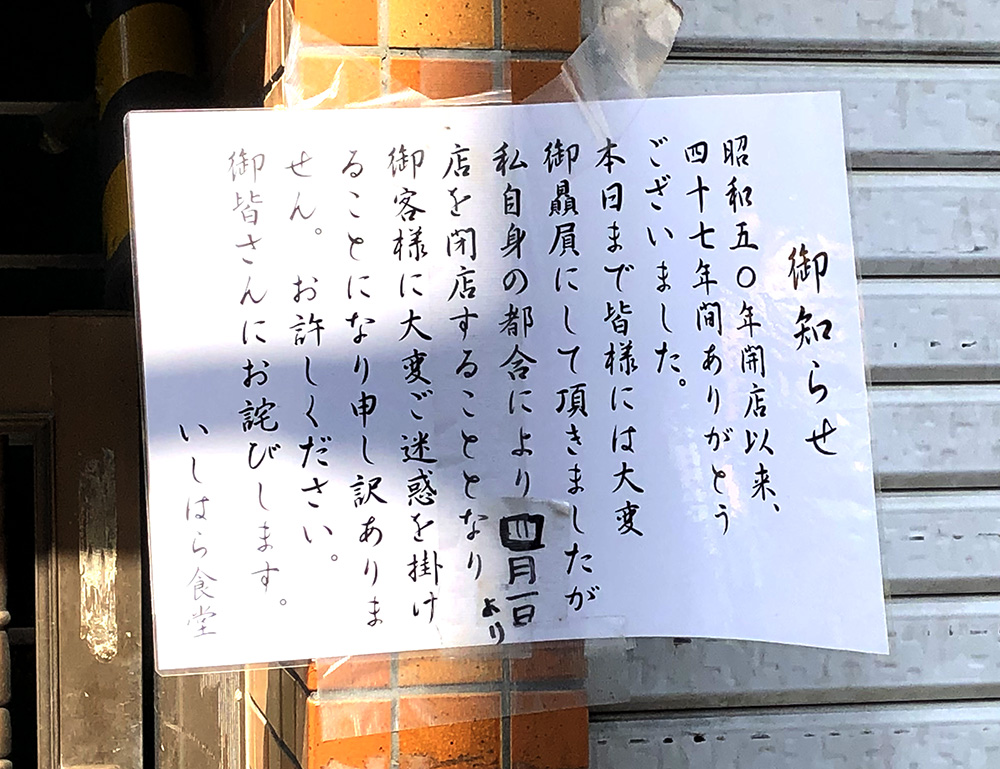 御知らせ
昭和五〇年開店以来、
四十七年間ありがとう
ございました。
本日まで皆様には大変
御贔屓にして頂きましたが
私自身の都合により四月一日
より
店を閉店することとなり
御客様に大変ご迷惑を掛け
ることになり申し訳ありま
せん。お許しください。
御皆さんにお詫びします。
いしはら食堂